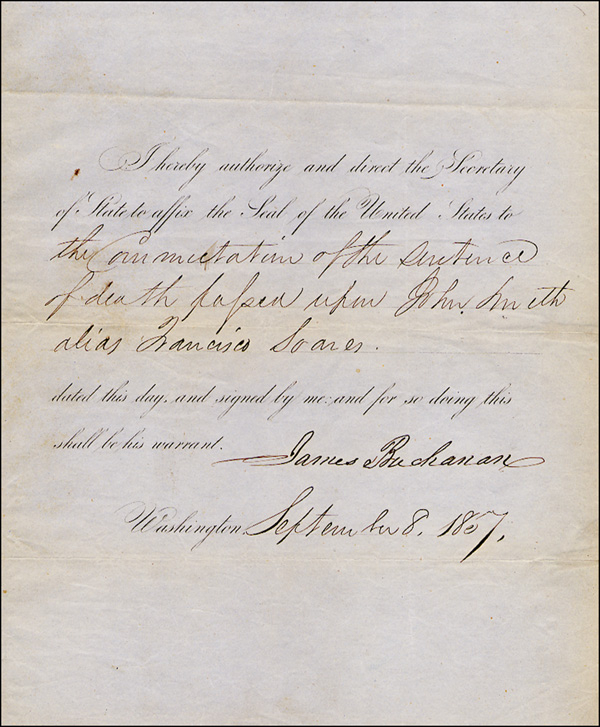 I hereby authorize and direct the Secretary
of State to affix the Seal of the United States to
the Commutation of the sentence
of death passed upon John Smith
alias Francisco Soares.
dated this day, and signed by me: and for so doing this
shall be his warrant.
James Buchanan
Washington, September 8. 1857.